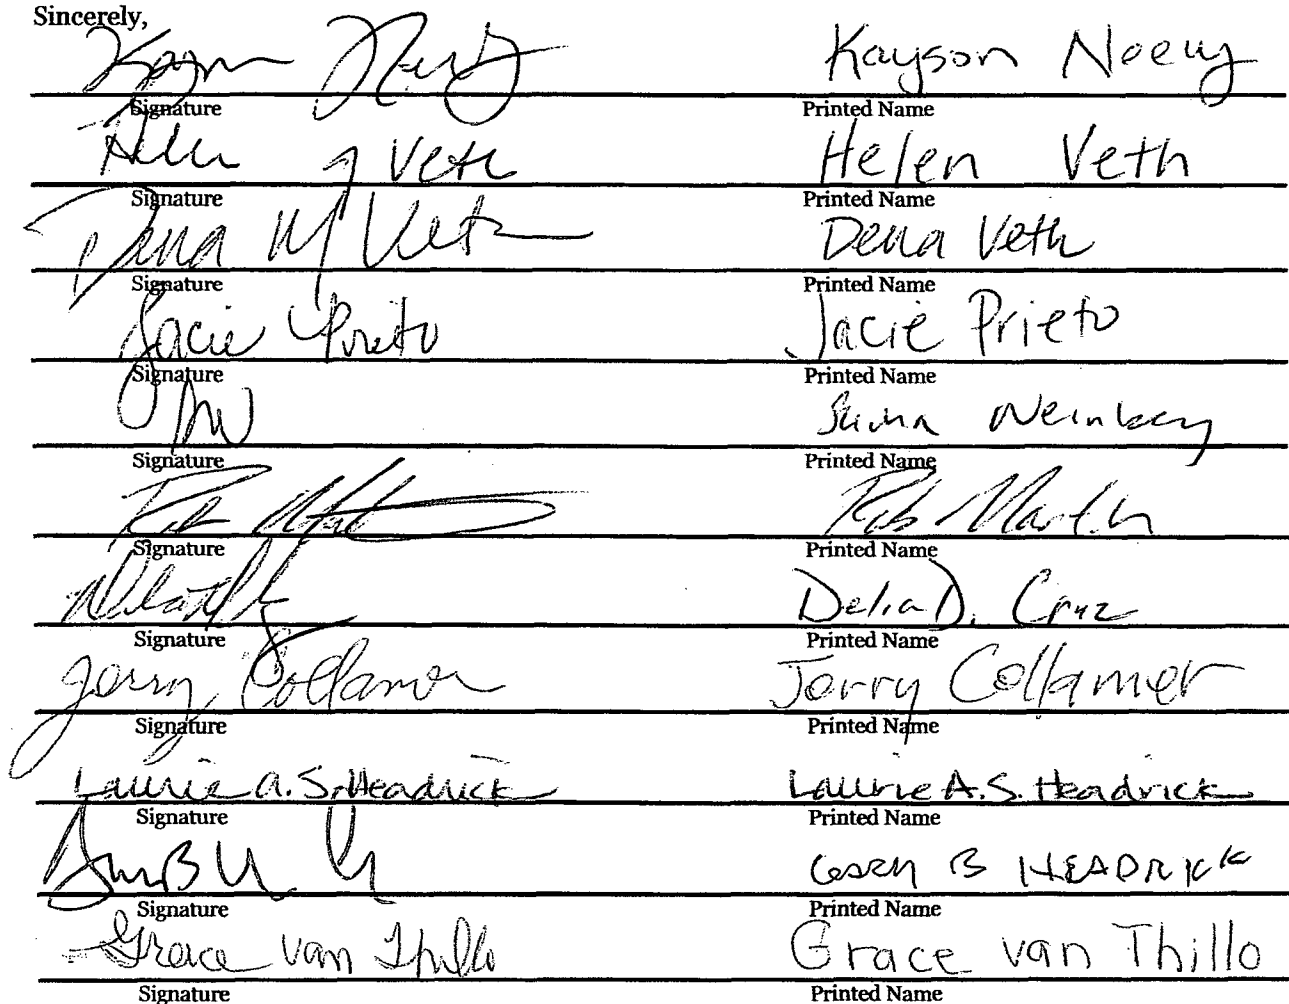 Sincerely,
Kayson Noeuy
Signature Printed Name
Helen J Veth Helen Veth
Signature Printed Name
Dena M Veth Dena Veth
Signature Printed Name
Jacie Prieto Jacie Prieto
Signature Printed Name
Signature Printed Name
Rob Martin Rob Martin
Signature Printed Name
Delia D. Cruz
Signature Printed Name
Jerry Collamer Jerry Collamer
Signature Printed Name
Laurie A. S. Headrick Laurie A.S. Headrick
Signature Printed Name
GARY B HEADRICK
Signature Printed Name
Grace van Thillo Grace van Thillo
Signature Printed Name